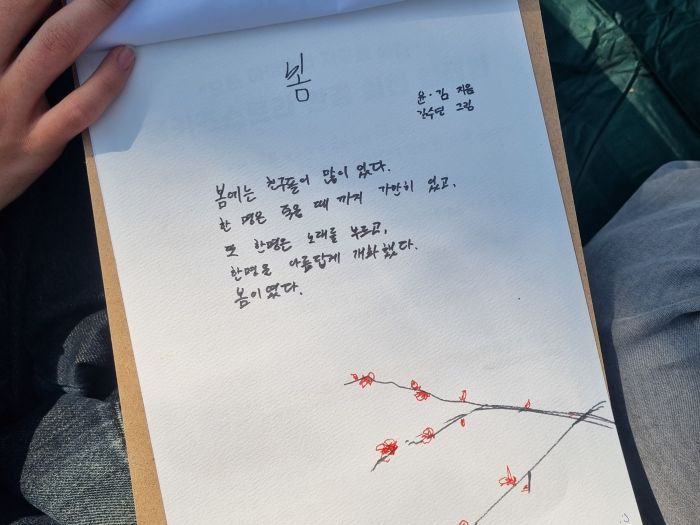 봄
윤·김 지음
김수연 그림
봄에는 친구들이 많이 있다.
한 명은 죽을 때 까지 가만히 있고,
또 한명은 노래를 부르고,
한명은 아름답게 개화했다.
봄이였다.